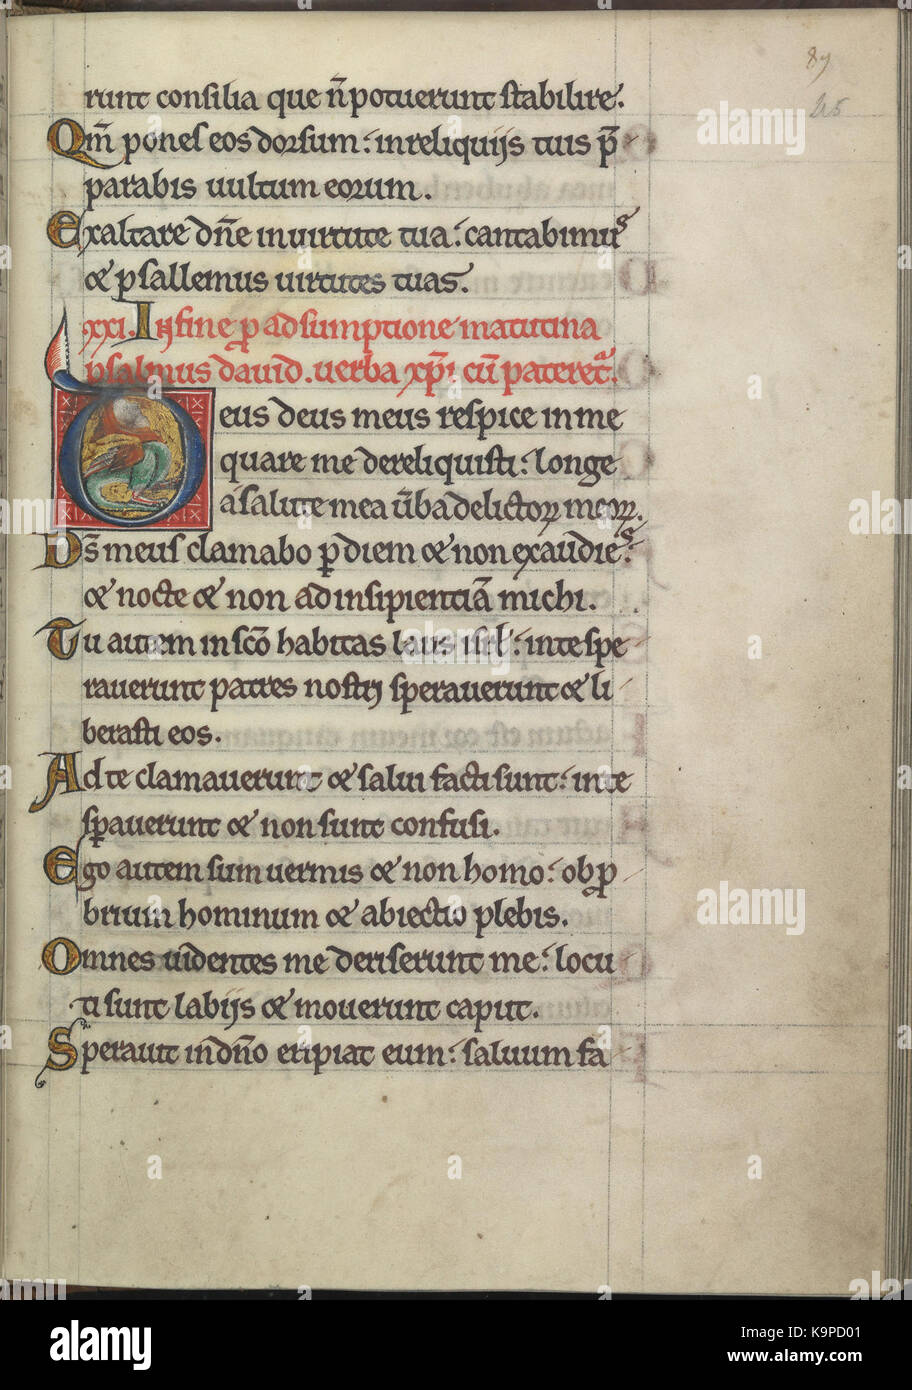 89
45
runt consilia que n̄ potuerunt stabilire.
Qm̄ pones eos dorsum: in reliquijs tuis p̄
parabis uultum eorum.
Exaltare dn̄e in uirtute tua: cantabimus
& psallemus uirtutes tuas.
xxi. In fine ꝑ adsumptione matutina
psalmus dauid. uerba xp̄i cū pateret᷑.
Deus deus meus respice in me
quare me dereliquisti: longe
a salute mea ūba delictoꝝ meoꝝ.
Ds̄ meus clamabo ꝑ diem & non exaudies:
& nocte & non ad insipientiā michi.
Tu autem in scō habitas laus isrl̓: in te spe
rauerunt patres nostri sperauerunt & li
berasti eos.
Ad te clamauerunt & salui facti sunt: in te
sꝑauerunt & non sunt confusi.
Ego autem sum uermis & non homo: obp̄
brium hominum & abiectio plebis.
Omnes uidentes me deriserunt me: locu
ti sunt labijs & mouerunt caput.
Sperauit in dn̄o eripiat eum: saluum fa
alamy
alamy
alamy
alamy
alamy
Image ID: K9PD01
www.alamy.com